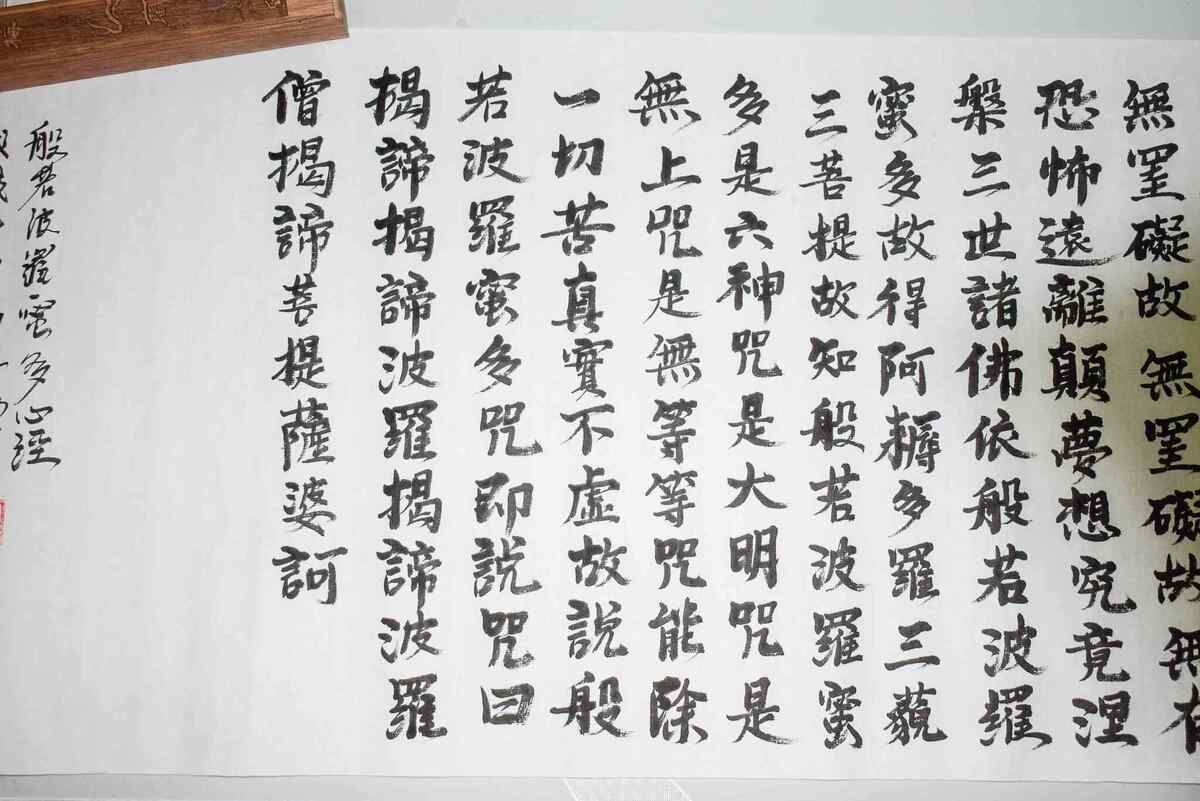 無罣礙故無罣礙故無有
恐怖遠離顛夢想究竟涅
槃三世諸佛依般若波羅
蜜多故得阿耨多羅三藐
三菩提故知般若波羅蜜
多是六神咒是大明咒是
無上咒是無等等咒能除
一切苦真實不虛故說般
若波羅蜜多咒即說咒曰
揭諦揭諦波羅揭諦波羅
僧揭諦菩提薩婆訶
般若波羅蜜多心經